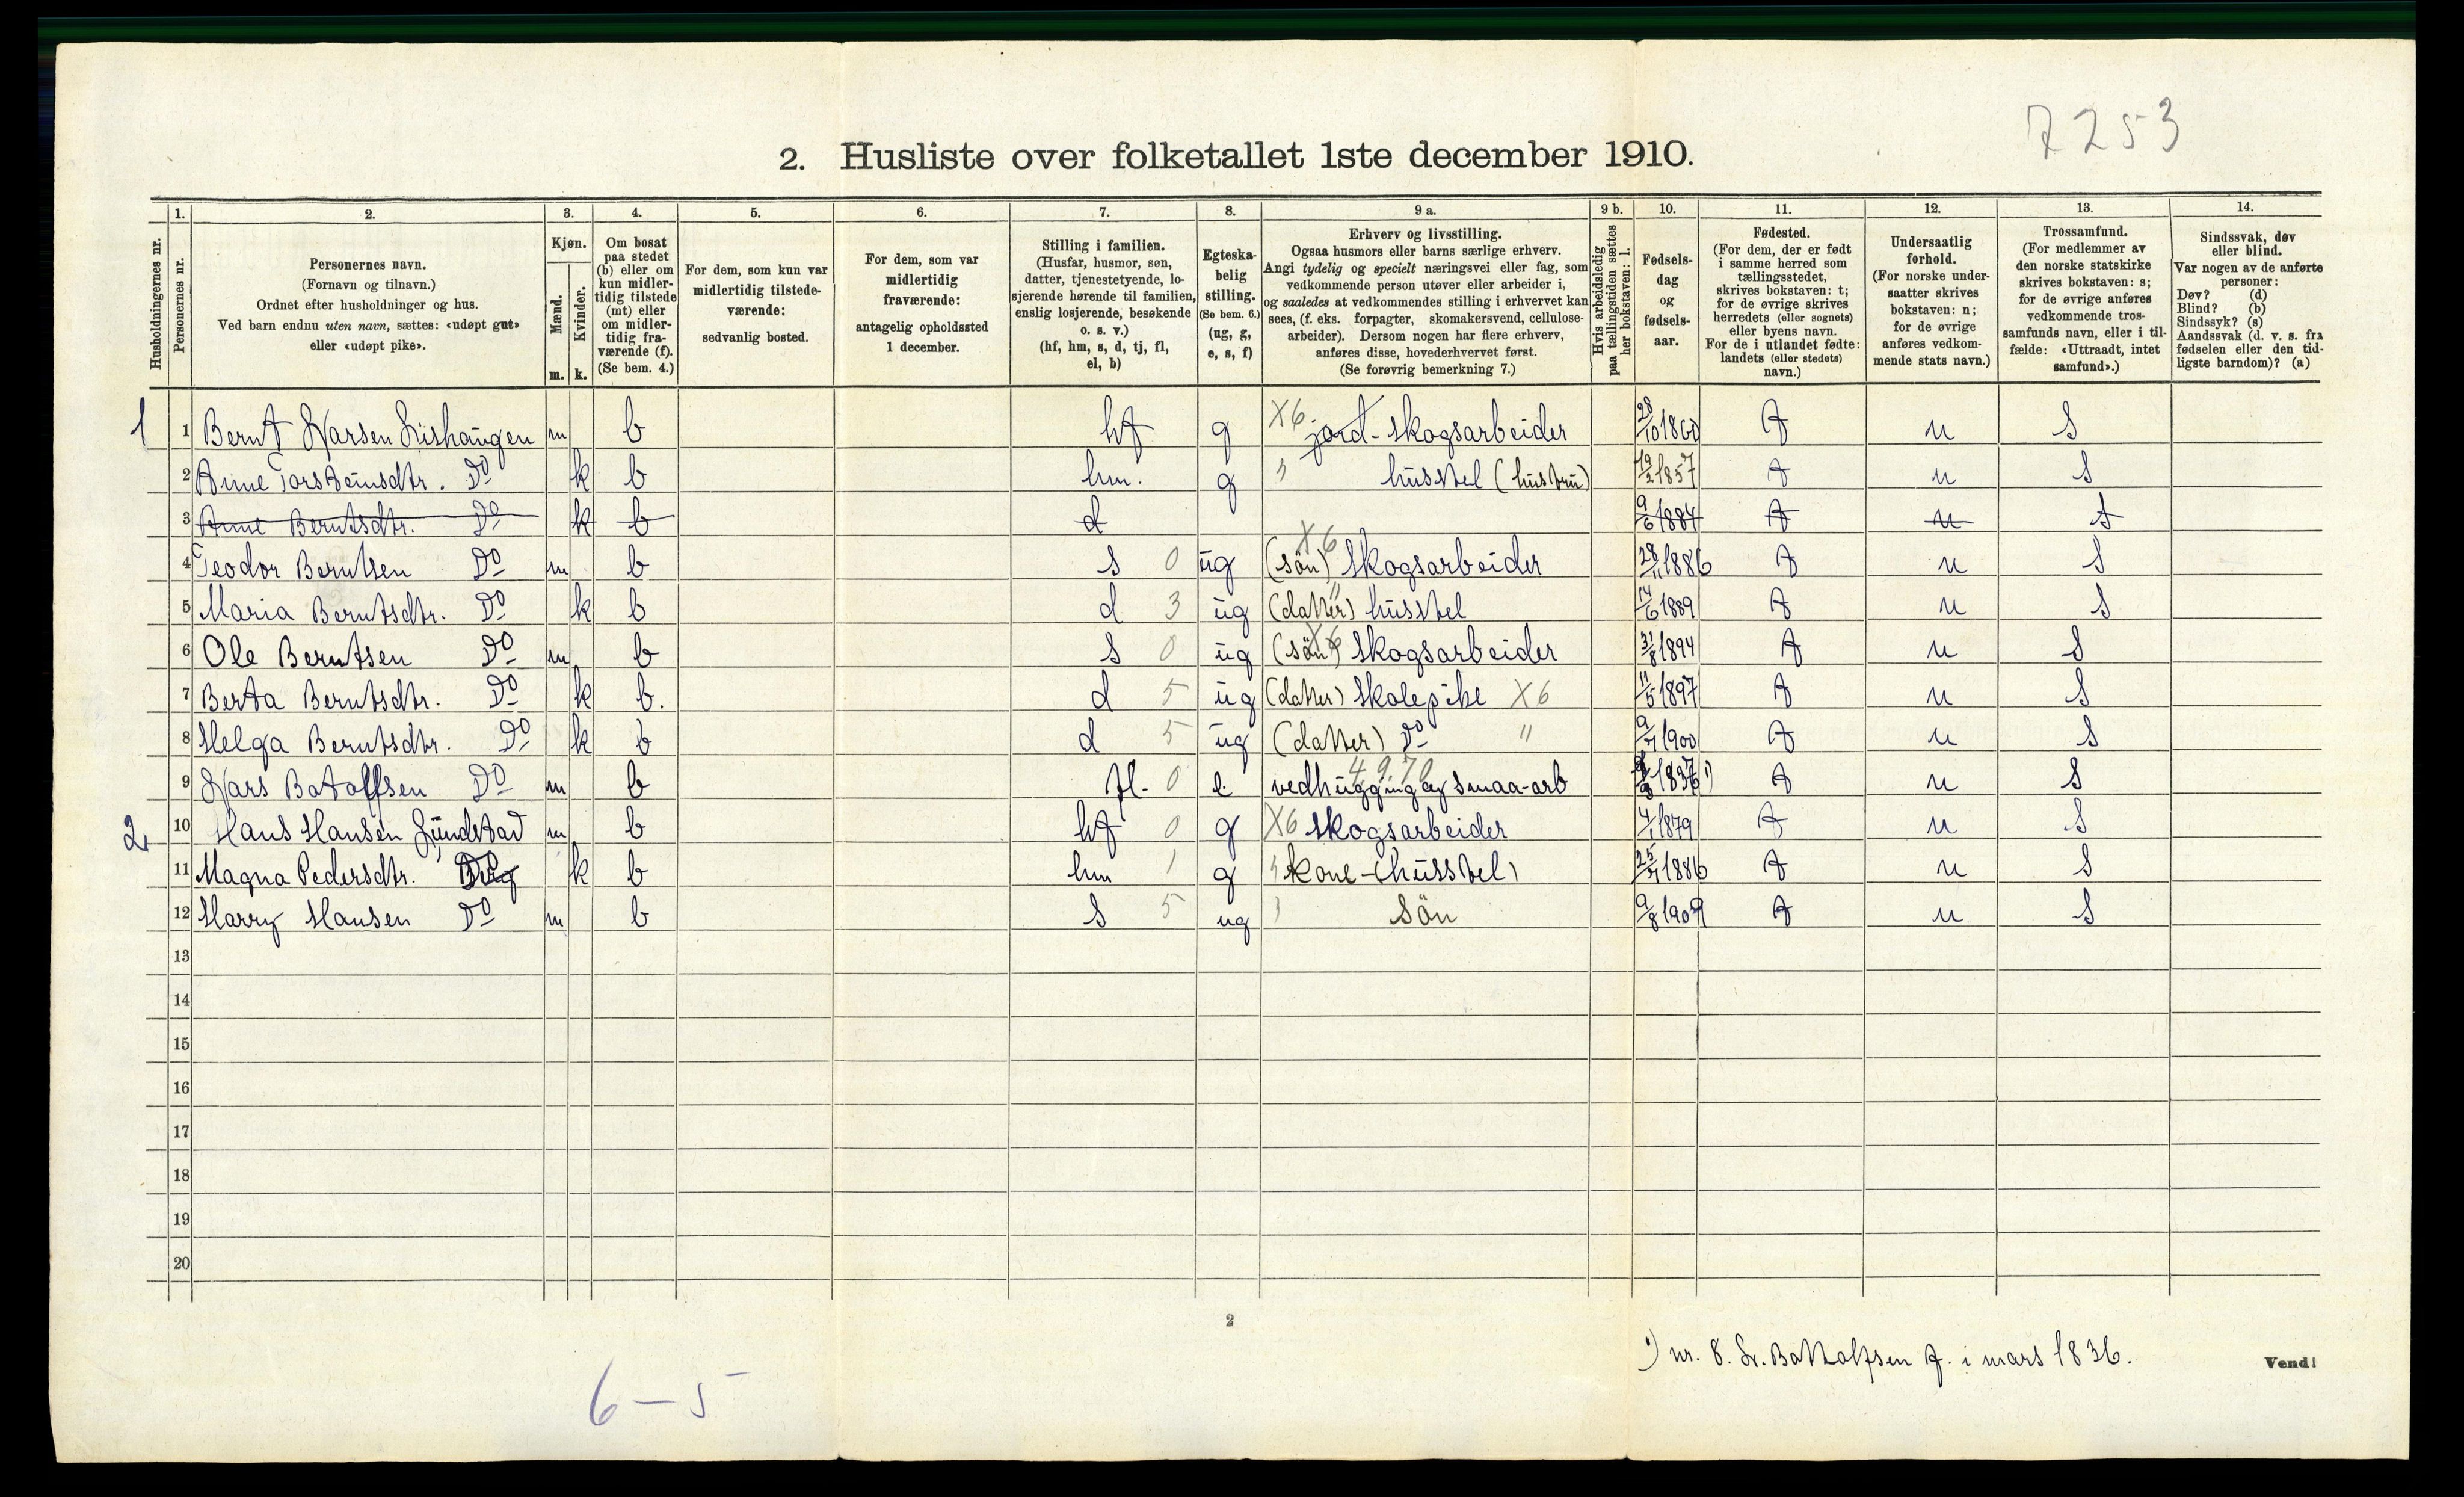 7253
2. Husliste over folketallet 1ste december 1910.
1. 2. 3. 4. 5. 6. 7. 8. 9 a. 9 b. 10. 11. 12. 13. 14.
Husholdningernes nr.
Personernes nr.
Personernes navn.
(Fornavn og tilnavn.)
Ordnet efter husholdninger og hus.
Ved barn endnu uten navn, sættes: «udøpt gut»
eller «udøpt pike».
Kjøn.
Mænd.
Kvinder.
m. k.
Om bosat
paa stedet
(b) eller om
kun midler-
tidig tilstede
(mt) eller
om midler-
tidig fra-
værende (f).
(Se bem. 4.)
For dem, som kun var
midlertidig tilstede-
værende:
sedvanlig bosted.
For dem, som var
midlertidig
fraværende:
antagelig opholdssted
1 december.
Stilling i familien.
(Husfar, husmor, søn,
datter, tjenestetyende, lo-
sjerende hørende til familien,
enslig losjerende, besøkende
o. s. v.)
(hf, hm, s, d, tj, fl,
el, b)
Egteska-
belig
stilling.
(Se bem. 6.)
(ug, g,
e, s, f)
Erhverv og livsstilling.
Ogsaa husmors eller barns særlige erhverv.
Angi tydelig og specielt næringsvei eller fag, som
vedkommende person utøver eller arbeider i,
og saaledes at vedkommendes stilling i erhvervet kan
sees, (f. eks. forpagter, skomakersvend, cellulose-
arbeider). Dersom nogen har flere erhverv,
anføres disse, hovederhvervet først.
(Se forøvrig bemerkning 7.)
Hvis arbeidsledig
paa tællingstiden sættes
her bokstaven: l.
Fødsels-
dag
og
fødsels-
aar.
Fødested.
(For dem, der er født
i samme herred som
tællingsstedet,
skrives bokstaven: t;
for de øvrige skrives
herredets (eller sognets)
eller byens navn.
For de i utlandet fødte:
landets (eller stedets)
navn.)
Undersaatlig
forhold.
(For norske under-
saatter skrives
bokstaven: n;
for de øvrige
anføres vedkom-
mende stats navn.)
Trossamfund.
(For medlemmer av
den norske statskirke
skrives bokstaven: s;
for de øvrige anføres
vedkommende tros-
samfunds navn, eller i til-
fælde: «Uttraadt, intet
samfund».)
Sindssvak, døv
eller blind.
Var nogen av de anførte
personer:
Døv? (d)
Blind? (b)
Sindssyk? (s)
Aandssvak (d. v. s. fra
fødselen eller den tid-
ligste barndom)? (a)
1 1 Bernt Larsen Lishaugen m b hf g X6 jord-skogsarbeider 28/10 1860 t n s
2 Anne Torsteinsdtr. Do k b hm. g " husstel (hustru) 19/2 1857 t n s
3 Anne Berntsdtr. Do k b d 9/6 1884 t n s
4 Teodor Berntsen Do m b s 0 ug (sön) X6 skogsarbeider 28/11 1886 t n s
5 Maria Berntsdtr. Do k b d 3 ug (datter) " husstel 14/6 1889 t n s
6 Ole Berntsen Do m b s 0 ug (sön) X6 skogsarbeider 31/8 1894 t n s
7 Berta Berntsdtr. Do k b. d 5 ug (datter) skolepike X6 11/5 1897 t n s
8 Helga Berntsdtr. Do k b d 5 ug (datter) Do " 9/7 1900 t n s
9 Lars Botolfsen Do m b fl. 0 e. 4970 vedhugging og smaa-arb 1836 1) t n s
2 10 Hans Hansen Lundstad m b hf 0 g X6 skogsarbeider 4/1 1879 t n s
11 Magna Pedersdtr. Do k b hm 1 g " kone-(husstel) 25/7 1886 t n s
12 Harry Hansen Do m b s 5 ug " sön 9/8 1909 t n s
13
14
15
16
17
18
19
20
2
1) nr. 8. L. Bottolfsen f. i mars 1836.
Vend!
6 – 5